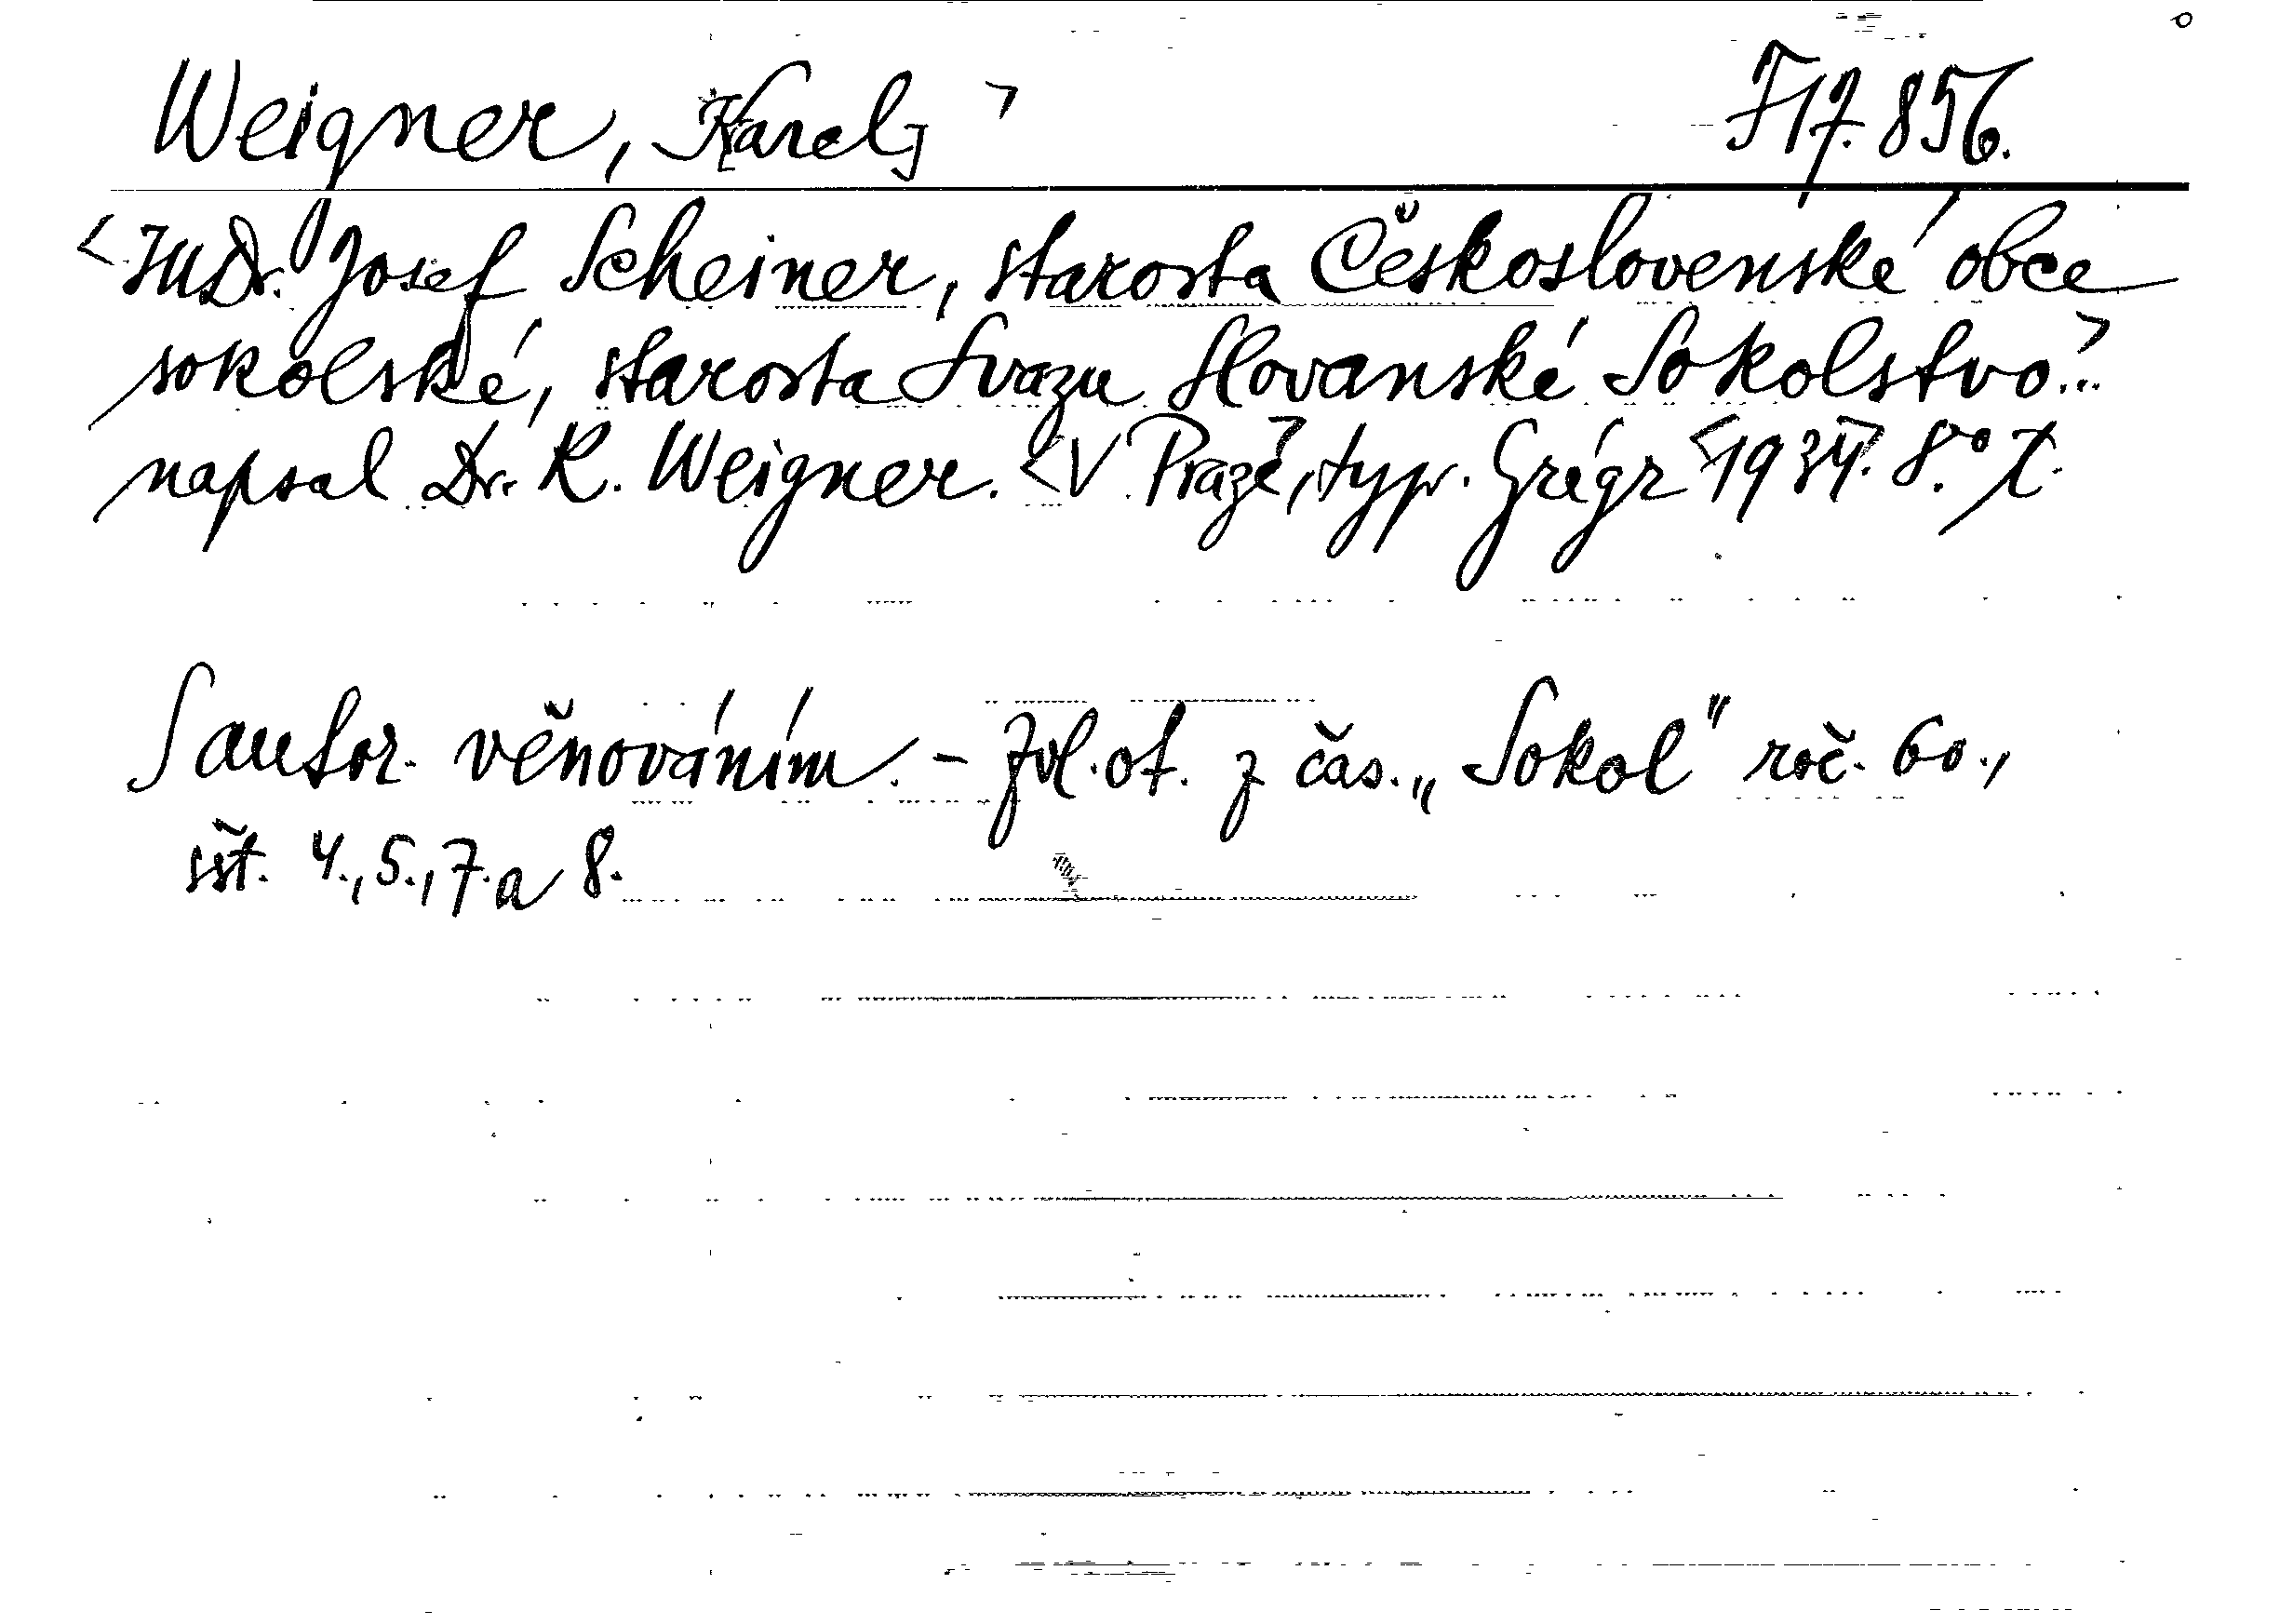 Weigner, Karel] > I 17.856.
<JUDr. Josef Scheiner, starosta Československé obce
sokolské, starosta Svazu Slovanské Sokolstvo.>..
napsal Dr. K. Weigner. <V Praze, typ. Grégr> <1934>. 8.° X.
S autor. věnováním. - Zvl. ot. z čas. „Sokol" roč. 60.,
sšt. 4., 5., 7. a 8.